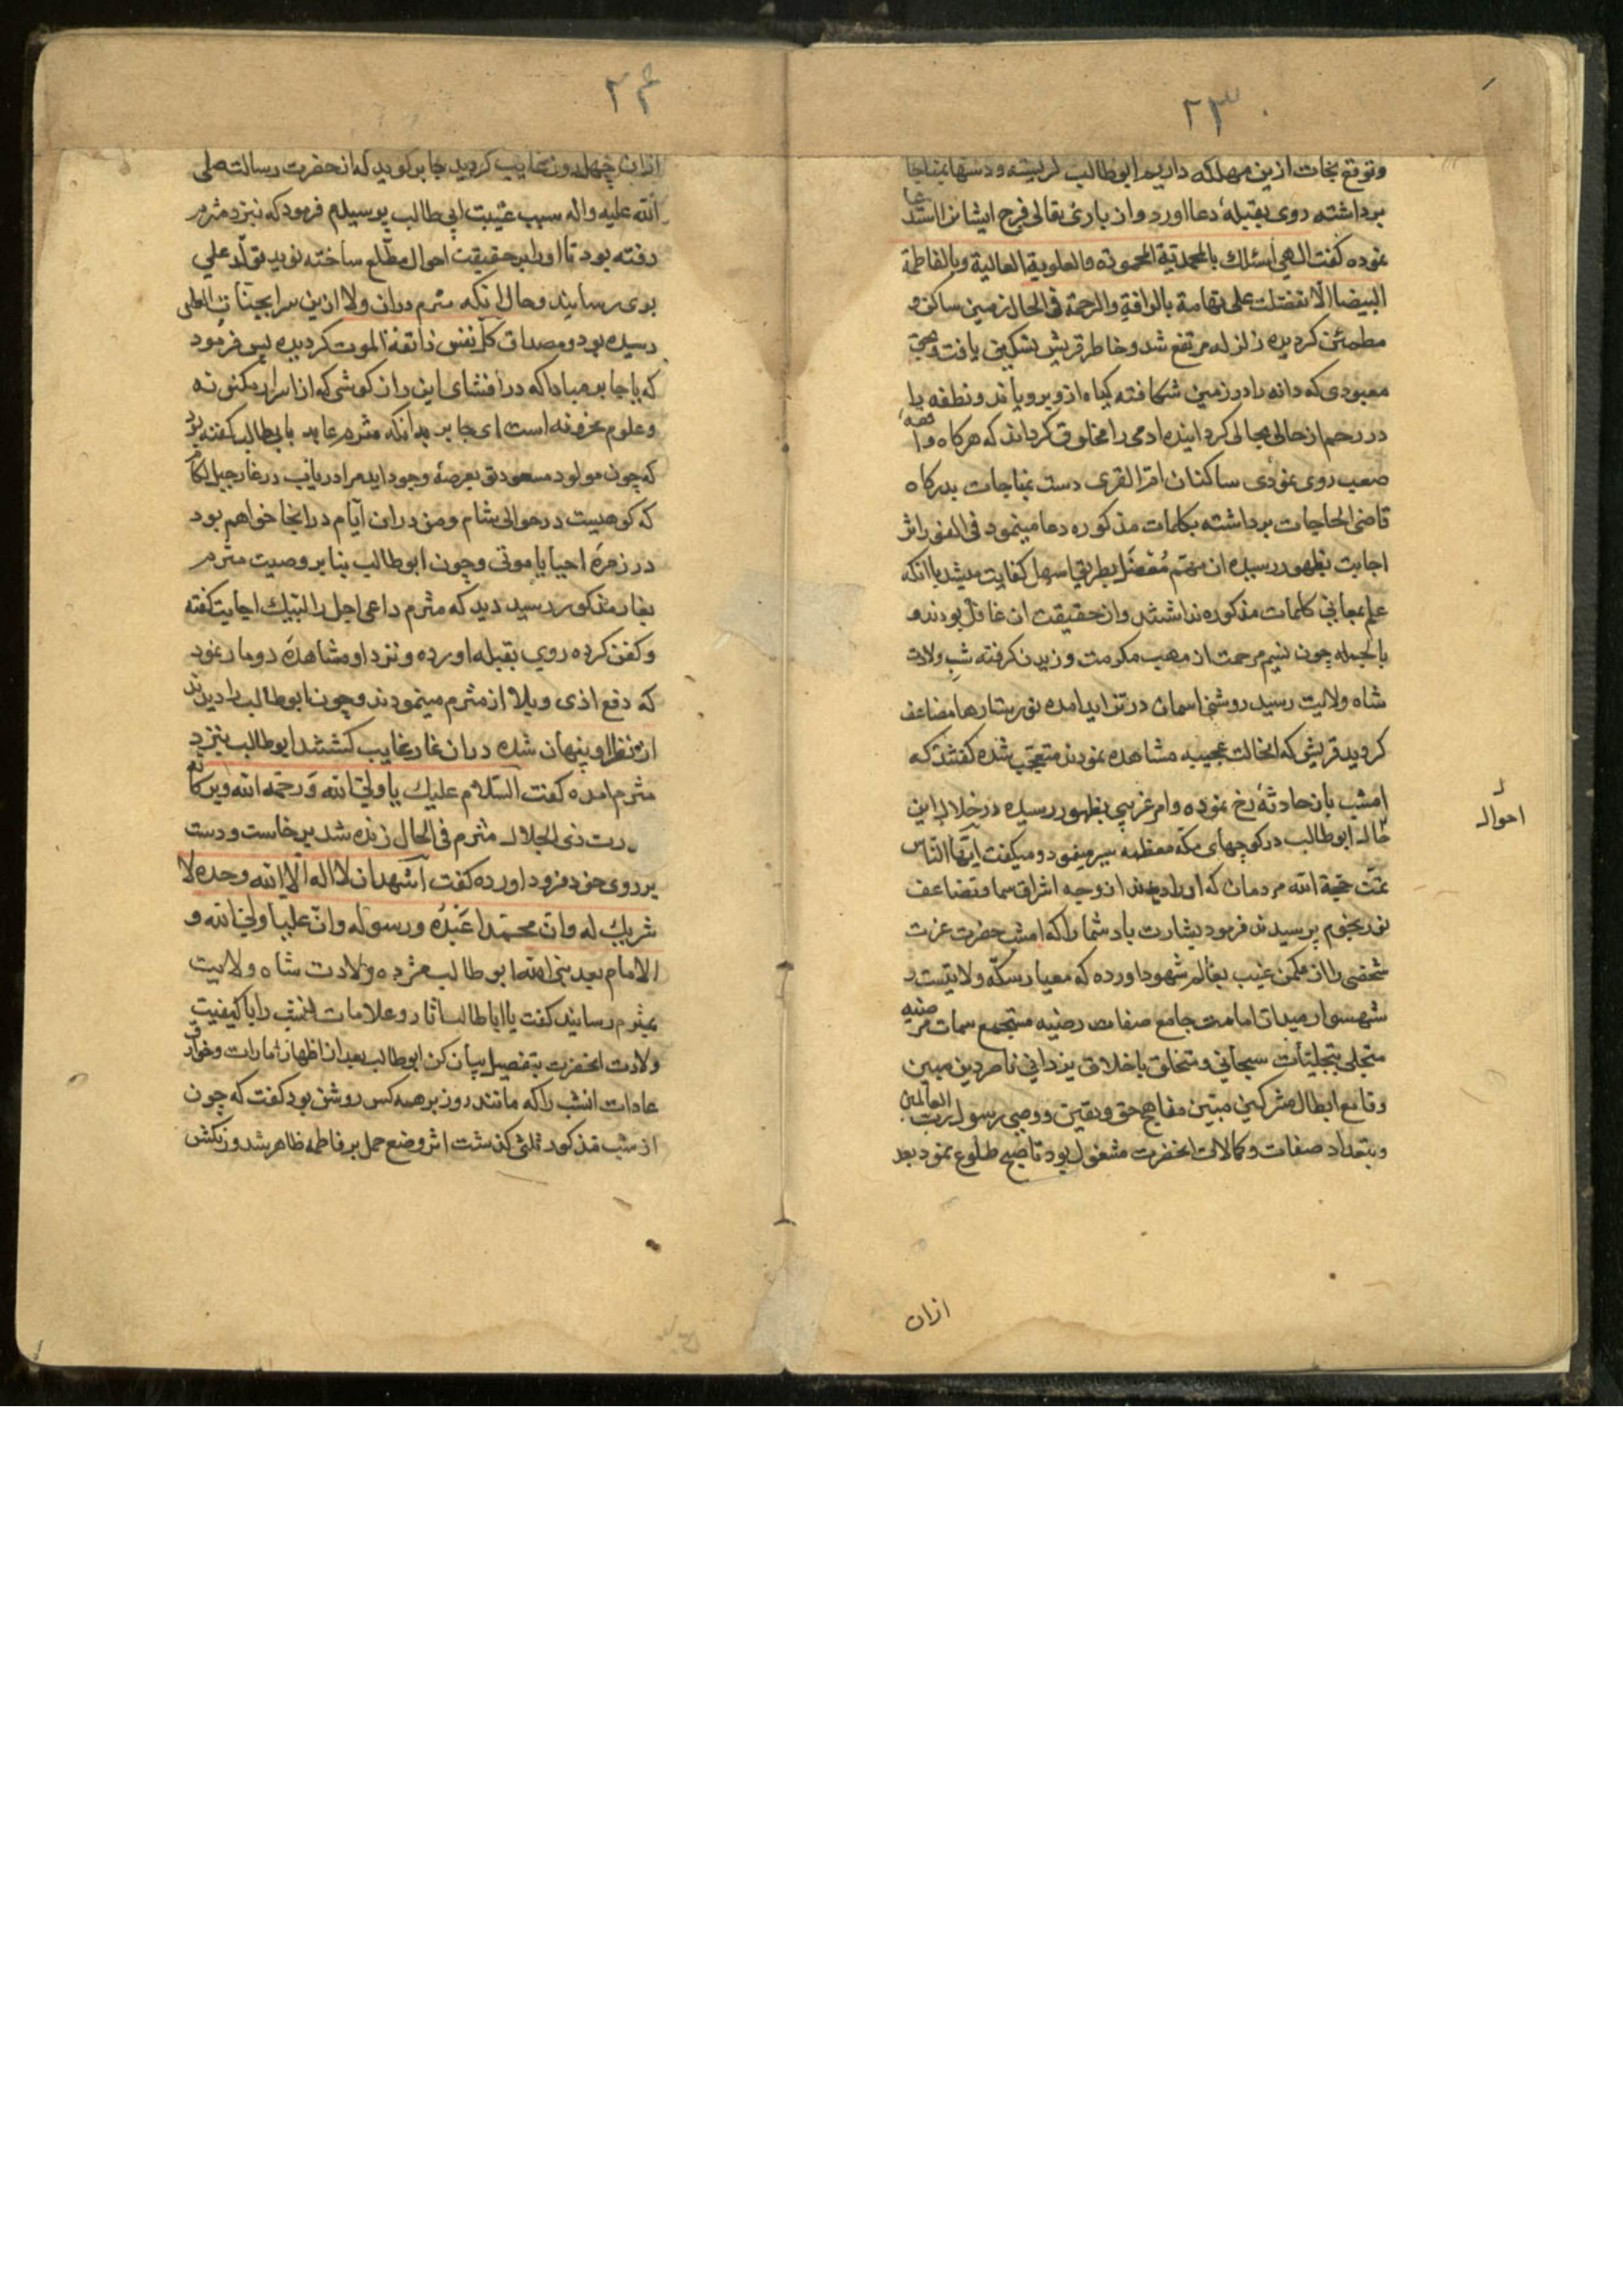 ۲۳
وتوقع نجات ازین مهلکه داریم ابوطالب کریسته ودستها بمناجا
برداشته روی بقبلهٔ دعا اورد وان باری تعالی فرج ایشانرا استدعا
نموده کفت الهی اسئلک بالمحمدیة المحمودة والعلویة العالیة وبالفاطمة
البیضا الا تفضلت علی تهامة بالرافة والرحمة فی الحال زمین ساکن و
مطمئن کردیده زلزله مرتفع شد وخاطر قریش تسکین یافت وبحق
معبودی که دانه را در زمین شکافته کیاه ازو برویاند ونطفه را
در رحم از حالی بحالی کردانیده ادمی را مخلوق کرداند که هرکاه واقعه
صعب روی نمودی ساکنان ام القری دست بمناجات بدرکاه
قاضی الحاجات برداشته بکلمات مذکوره دعا مینمود فی الفور اثر
اجابت بظهور رسیده ان مهم مفصل بطریق اسهل کفایت میشد با انکه
علم بمعانی کلمات مذکوره نداشتند وان حقیقت ان غافل بودند و
بالجمله چون نسیم مرحمت از مهب مکرمت وزیدن کرفته شب ولادت
شاه ولایت رسید روشنی اسمان در تزاید امده نور ستارها مضاعف
کردید قریش که انحالت عجیبه مشاهده نمودند متعجب شده کفتند که
امشب بان حادثهٔ رخ نموده وامر غریبی بظهور رسیده در خلال این
احوال
حال ابوطالب در کوچهای مکهٔ معظمه سیر میفمود ومیکفت ایها الناس
تمت حجة الله مردمان که اورا دیدند از وجه اشراق سما وتضاعف
نور نجوم پرسیدند فرمود بشارت باد شما را که امشب حضرت عزت
شخصی را از مکمن غیب بعالم شهود اورده که معیار سکهٔ ولایتست و
شهسوار میدان امامت جامع صفات رضیه مستجمع سمات مرضیه
متجلی بتجلیات سبحانی ومتخلق باخلاق یزدانی ناصر دین مبین
وقامع ابطال مشرکین مبین مفاهج حق ویقین ووصی رسول رب العالمین
وبتعداد صفات وکمالات انحضرت مشغول بود تا صبح طلوع نمود بعد
ازان
۲۴
ازان چهل روز غایب کردید جابر کوید که از حضرت رسالت صلی
الله علیه واله سبب غیبت ابی طالب پرسیدم فرمود که نبزد مثرم
رفته بود تا اورا بر حقیقت احوال مطلع ساخته نوید تولد علی
بوی رسانید وحال انکه مثرم دران ولا ازین سرا بجنات اعلی
رسیده بود ومصداق کل نفس ذائقة الموت کردیده پس فرمود
که یا جابر مبادا که در افشای این راز کوشی که از اسرار مکنونه
وعلوم مخزونه است ای جابر بدانکه مثرم عابد بابی طالب کفته بود
که چون مولود مسعود تو بعرصهٔ وجود اید مرا دریاب در غار جبل لکام
که کوهیست در حوالی شام ومن دران ایام در انجا خواهم بود
در زمرهٔ احیا یا موتی وچون ابوطالب بنا بر وصیت مثرم
بغار مذکور رسید دید که مثرم داعی اجل را لبیک اجابت کفته
وکفن کرده روی بقبله اورده ونزد او مشاهدهٔ دو مار نمود
که دفع اذی وبلا از مثرم مینمودند وچون ابوطالب را دیدند
از نظر او پنهان شده دران غار غایب کشتند ابوطالب بنزد
مثرم امده کفت السلام علیک یا ولی الله ورحمة الله وبرکاته
رب ذی الجلال مثرم فی الحال زنده شد برخاست ودست
بر روی خود فرود اورده کفت اشهد ان لا اله الا الله وحده لا
شریک له وان محمدا عبده ورسوله وان علیا ولی الله و
الامام بعد نبی الله ابوطالب مژده ولادت شاه ولایت
بمثرم رسانید کفت یا اباطالب اثار وعلامات انشب را با کیفیت
ولادت انحضرت بتفصیل بیان کن ابوطالب بعد از اظهار امارات وخوارق
عادات انشب را که مانند روز بر همه کس روشن بود کفت که چون
از شب مذکور ثلثی کذشت اثر وضع حمل بر فاطمه ظاهر شد ورنکش